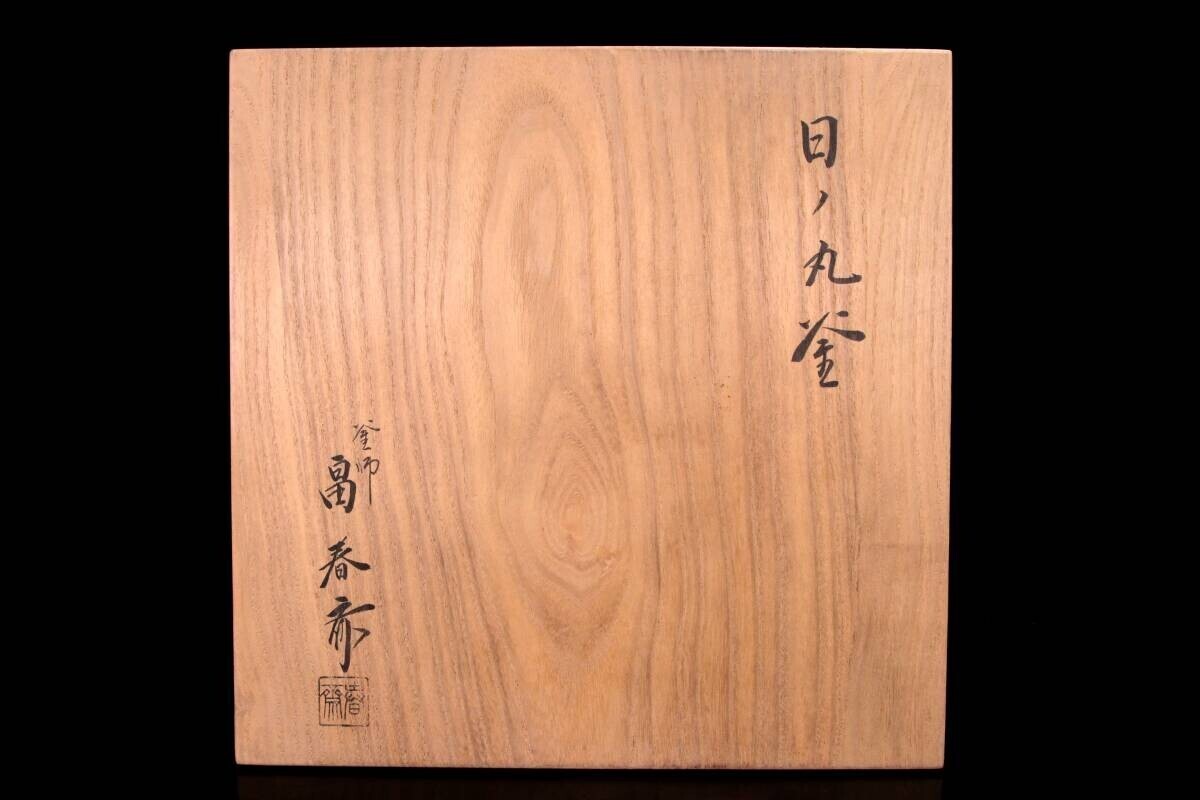 日ノ丸釜
釜師
畠春斎
春齋